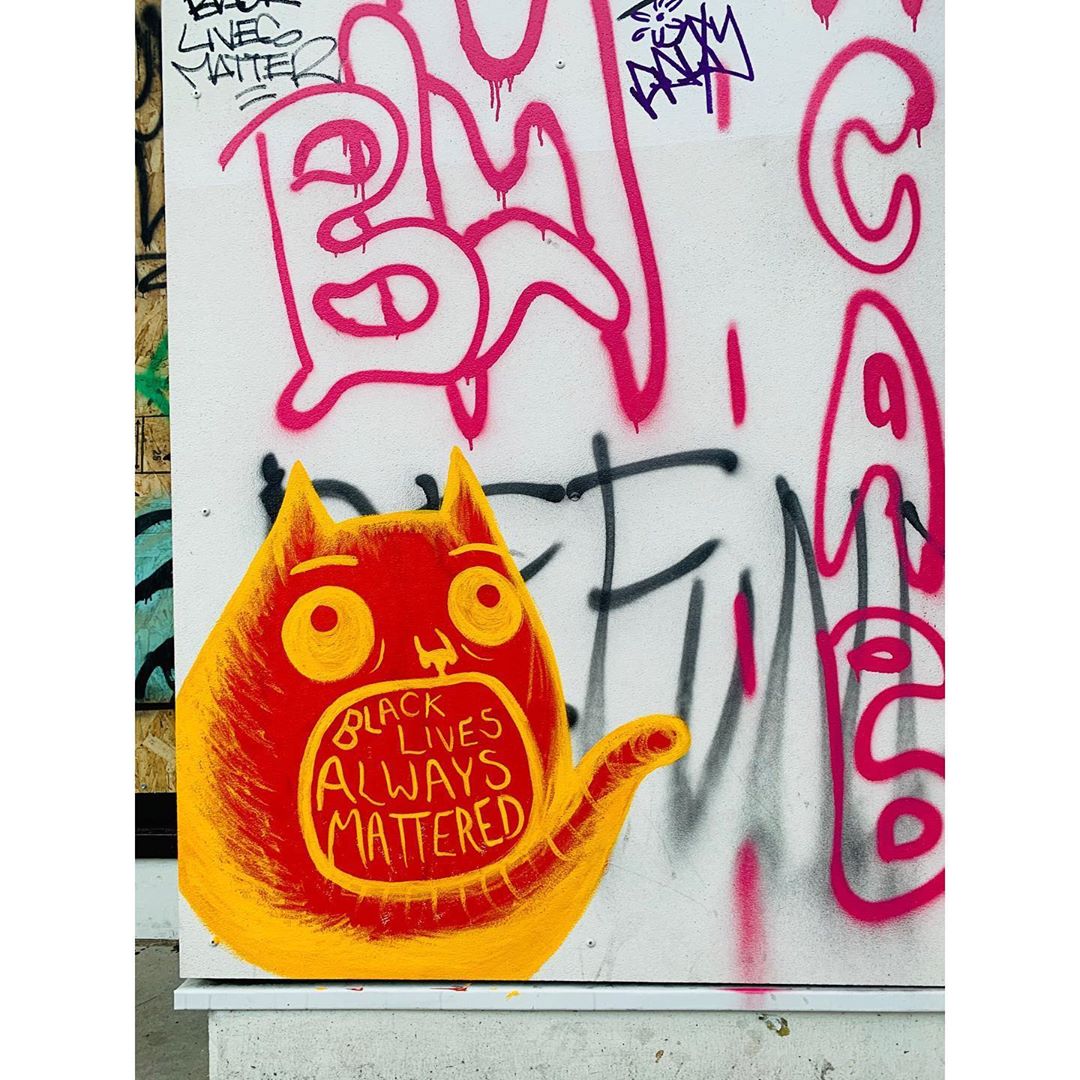 BLACK
LIVES
MATTER
BLM
ACAB
DEFUND
BLACK
LIVES
ALWAYS
MATTERED